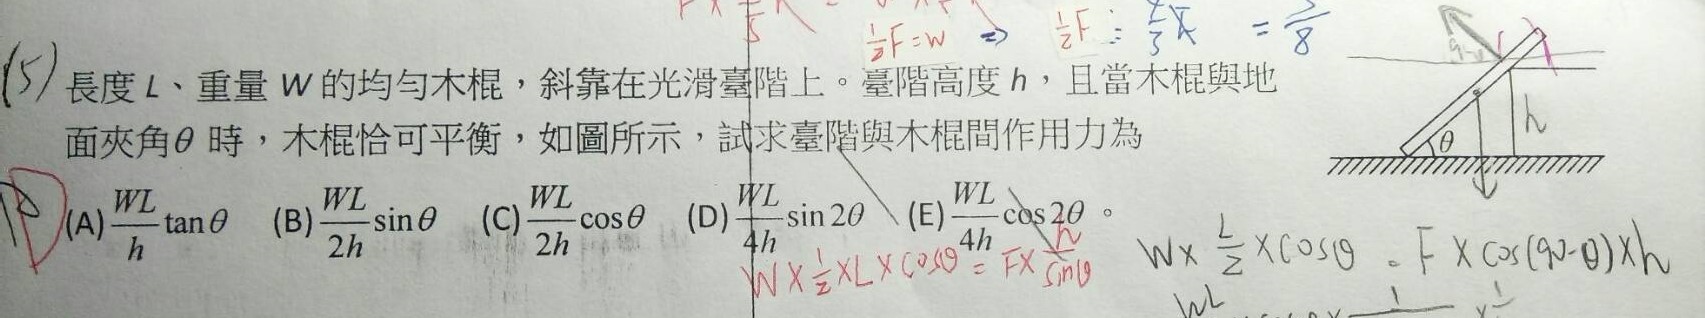 ½F=W ⇒ ½F
= 3/8
(5) 長度 L、重量 W 的均勻木棍，斜靠在光滑臺階上。臺階高度 h，且當木棍與地
面夾角θ 時，木棍恰可平衡，如圖所示，試求臺階與木棍間作用力為
D (A) WL/h tanθ (B) WL/2h sinθ (C) WL/2h cosθ (D) WL/4h sin 2θ (E) WL/4h cos2θ。
W×½×L×cosθ = F× h/sinθ
W× L/2 ×cosθ = F×cos(90-θ)×h
WL
θ
h